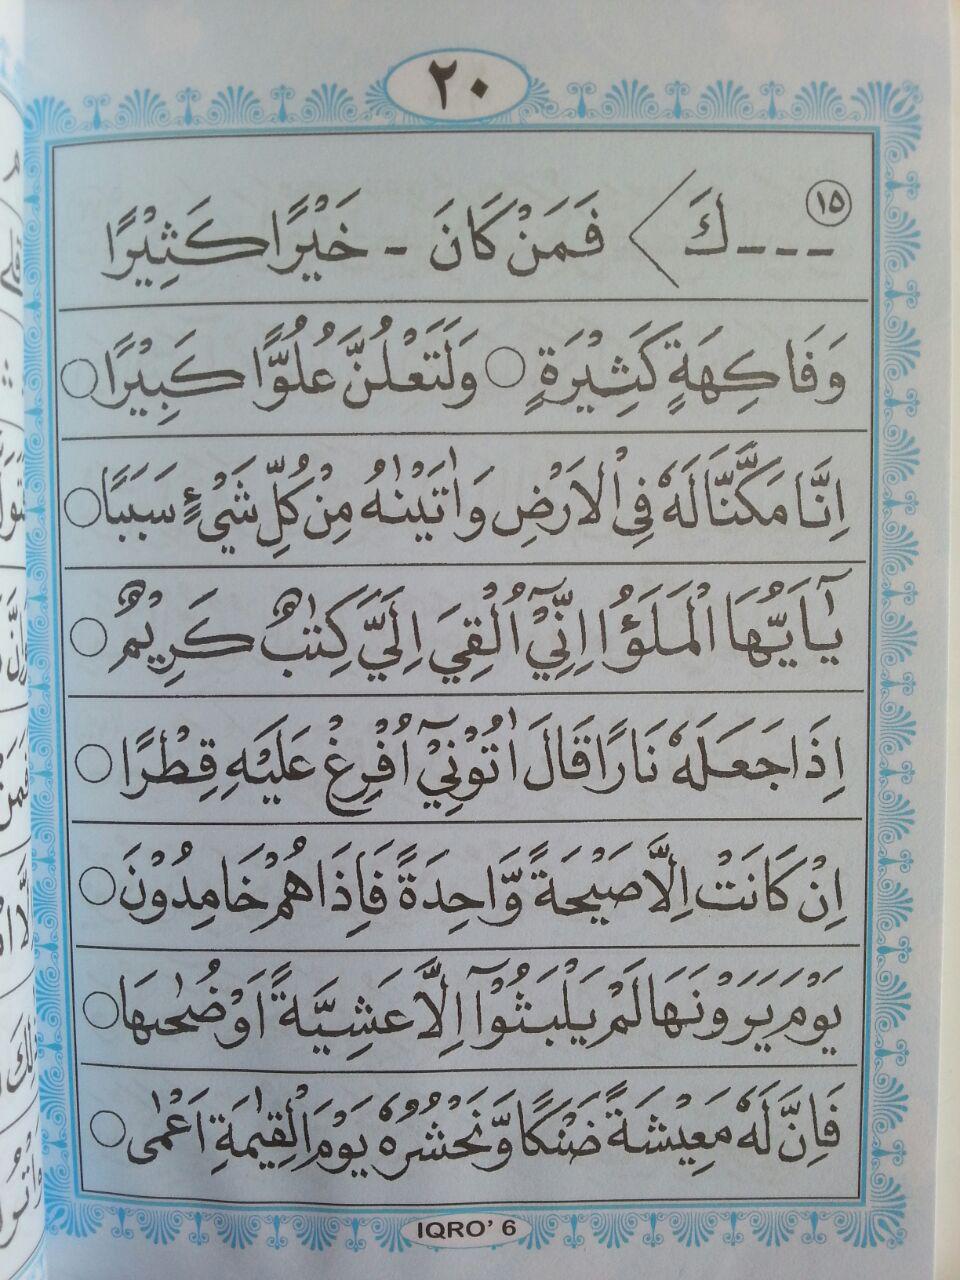 ٢٠
١٥ ـ ـ ـ كَ > فَمَنْ كَانَ - خَيْرًا كَثِيْرًا
وَفَاكِهَةٍ كَثِيْرَةٍ ○ وَلَتَعْلُنَّ عُلُوًّا كَبِيْرًا ○
اِنَّا مَكَّنَّا لَهٗ فِى الْاَرْضِ وَاٰتَيْنٰهُ مِنْ كُلِّ شَيْءٍ سَبَبًا ○
يٰٓاَيُّهَا الْمَلَؤُا اِنِّيْٓ اُلْقِيَ اِلَيَّ كِتٰبٌ كَرِيْمٌ ○
اِذَا جَعَلَهٗ نَارًا قَالَ اٰتُوْنِيْٓ اُفْرِغْ عَلَيْهِ قِطْرًا ○
اِنْ كَانَتْ اِلَّا صَيْحَةً وَّاحِدَةً فَاِذَا هُمْ خَامِدُوْنَ ○
يَوْمَ يَرَوْنَهَا لَمْ يَلْبَثُوْٓا اِلَّا عَشِيَّةً اَوْ ضُحٰىهَا ○
فَاِنَّ لَهٗ مَعِيْشَةً ضَنْكًا وَّنَحْشُرُهٗ يَوْمَ الْقِيٰمَةِ اَعْمٰى ○
IQRO’ 6